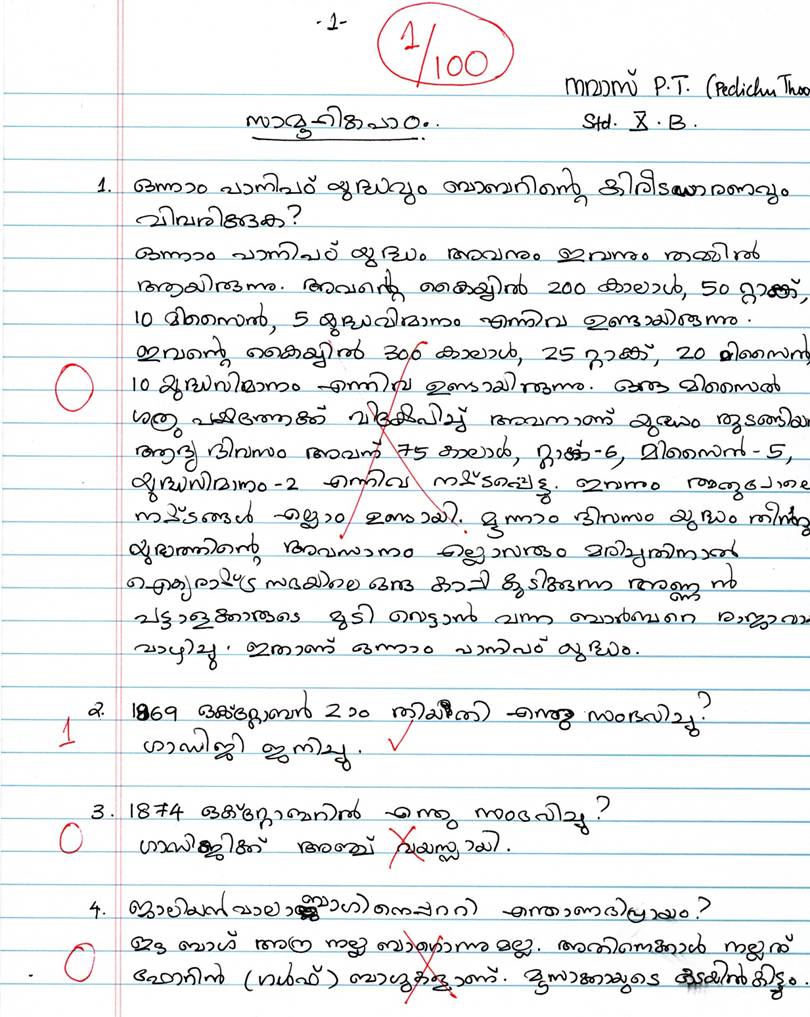 -1-
1/100
നവാസ് P.T. (Pedichu Thoo
സാമൂഹിക പാഠം..
Std. X. B.
1. ഒന്നാം പാനിപഠ് യുദ്ധവും ബാബറിന്റെ കിരീടധാരണവും
വിവരിക്കുക?
ഒന്നാം പാനിപഠ് യുദ്ധം അവനും ഇവനും തമ്മിൽ
ആയിരുന്നു. അവന്റെ കൈയ്യിൽ 200 കാലാൾ, 50 റ്റാങ്ക്,
10 മിസൈൻ, 5 യുദ്ധവിമാനം എന്നിവ ഉണ്ടായിരുന്നു.
ഇവന്റെ കൈയ്യിൽ 300 കാലാൾ, 25 റ്റാങ്ക്, 20 മിസൈൻ
0
10 യുദ്ധവിമാനം എന്നിവ ഉണ്ടായിരുന്നു. ഒരു മിസൈൽ
ശത്രു പക്ഷത്തേക്ക് വിക്ഷേപിച്ച് അവനാണ് യുദ്ധം തുടങ്ങിയ
ആദ്യ ദിവസം അവന് 75 കാലാൾ, റ്റാങ്ക്-6, മിസൈൻ-5,
യുദ്ധവിമാനം-2 എന്നിവ നഷ്ടപ്പെട്ടു. ഇവനും അതുപോലെ
നഷ്ടങ്ങൾ എല്ലാം ഉണ്ടായി. മൂന്നാം ദിവസം യുദ്ധം തീർന്നു
യുദ്ധത്തിന്റെ അവസാനം എല്ലാവരും മരിച്ചതിനാൽ
ഐക്യരാഷ്ട്ര സഭയിലെ ഒരു കാപ്പി കുടിക്കുന്ന അണ്ണൻ
പട്ടാളക്കാരുടെ മുടി വെട്ടാൻ വന്ന ബാർബറെ രാജാവാ
വാഴിച്ചു. ഇതാണ് ഒന്നാം പാനിപഠ് യുദ്ധം.
2. 1869 ഒക്ടോബർ 2 ാം തിയതി എന്തു സംഭവിച്ചു?
1 ഗാന്ധിജി ജനിച്ചു.
3. 1874 ഒക്ടോബറിൽ എന്തു സംഭവിച്ചു?
0 ഗാന്ധിജിക്ക് അഞ്ച് വയസ്സായി.
4. ജാലിയൻവാലാ ബാഗിനെപ്പററി എന്താണഭിപ്രായം?
ഇൗ ബാഗ് അത്ര നല്ല ബാഗൊന്നുമല്ല. അതിനെക്കാൾ നല്ലത്
0 ഫോറിൻ (ഗൾഫ്) ബാഗുകളാണ്. മൂസാക്കായുടെ കടയിൽ കിട്ടും.